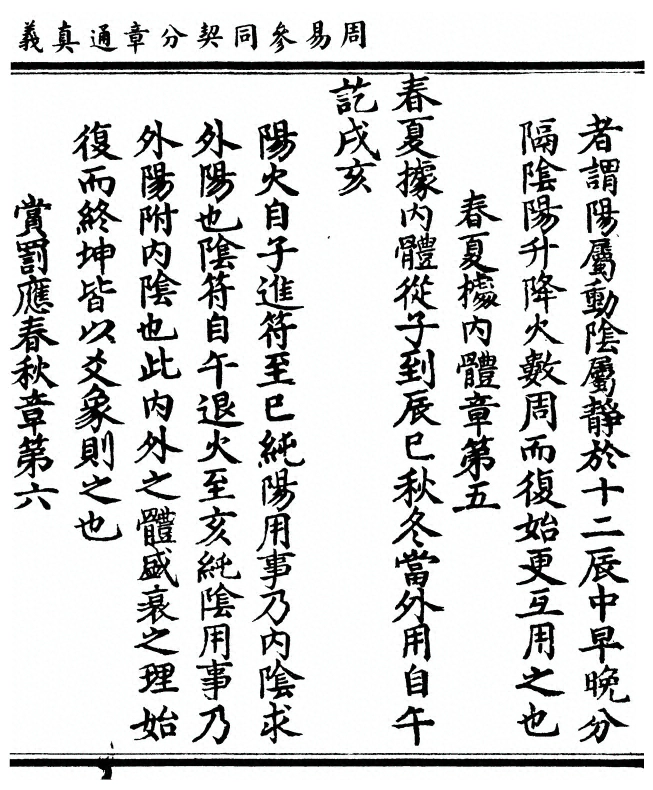 周易參同契分章通真義
者謂陽屬動陰屬靜於十二辰中早晚分
隔陰陽升降火數周而復始更互用之也
春夏據內體章第五
春夏據內體從子到辰巳秋冬當外用自午
訖戌亥
陽火自子進符至巳純陽用事乃內陰求
外陽也陰符自午退火至亥純陰用事乃
外陽附內陰也此內外之體盛衰之理始
復而終坤皆以爻象則之也
賞罰應春秋章第六